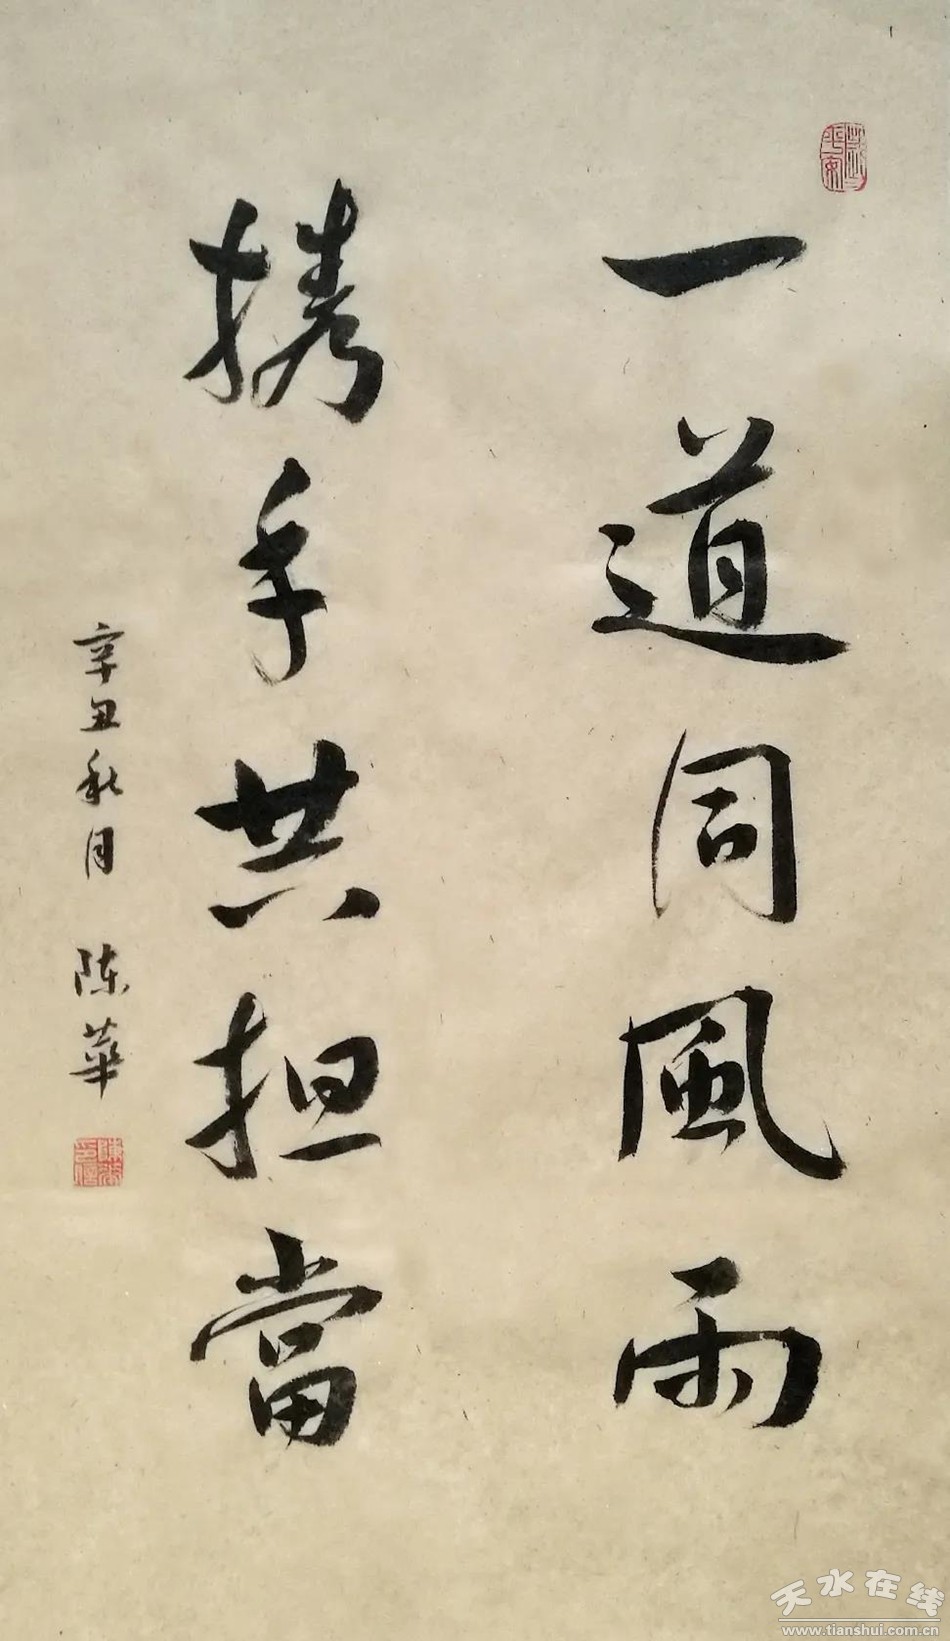 一道同風雨
携手共担當
辛丑秋月 陈華
天水在线
www.tianshui.com.cn